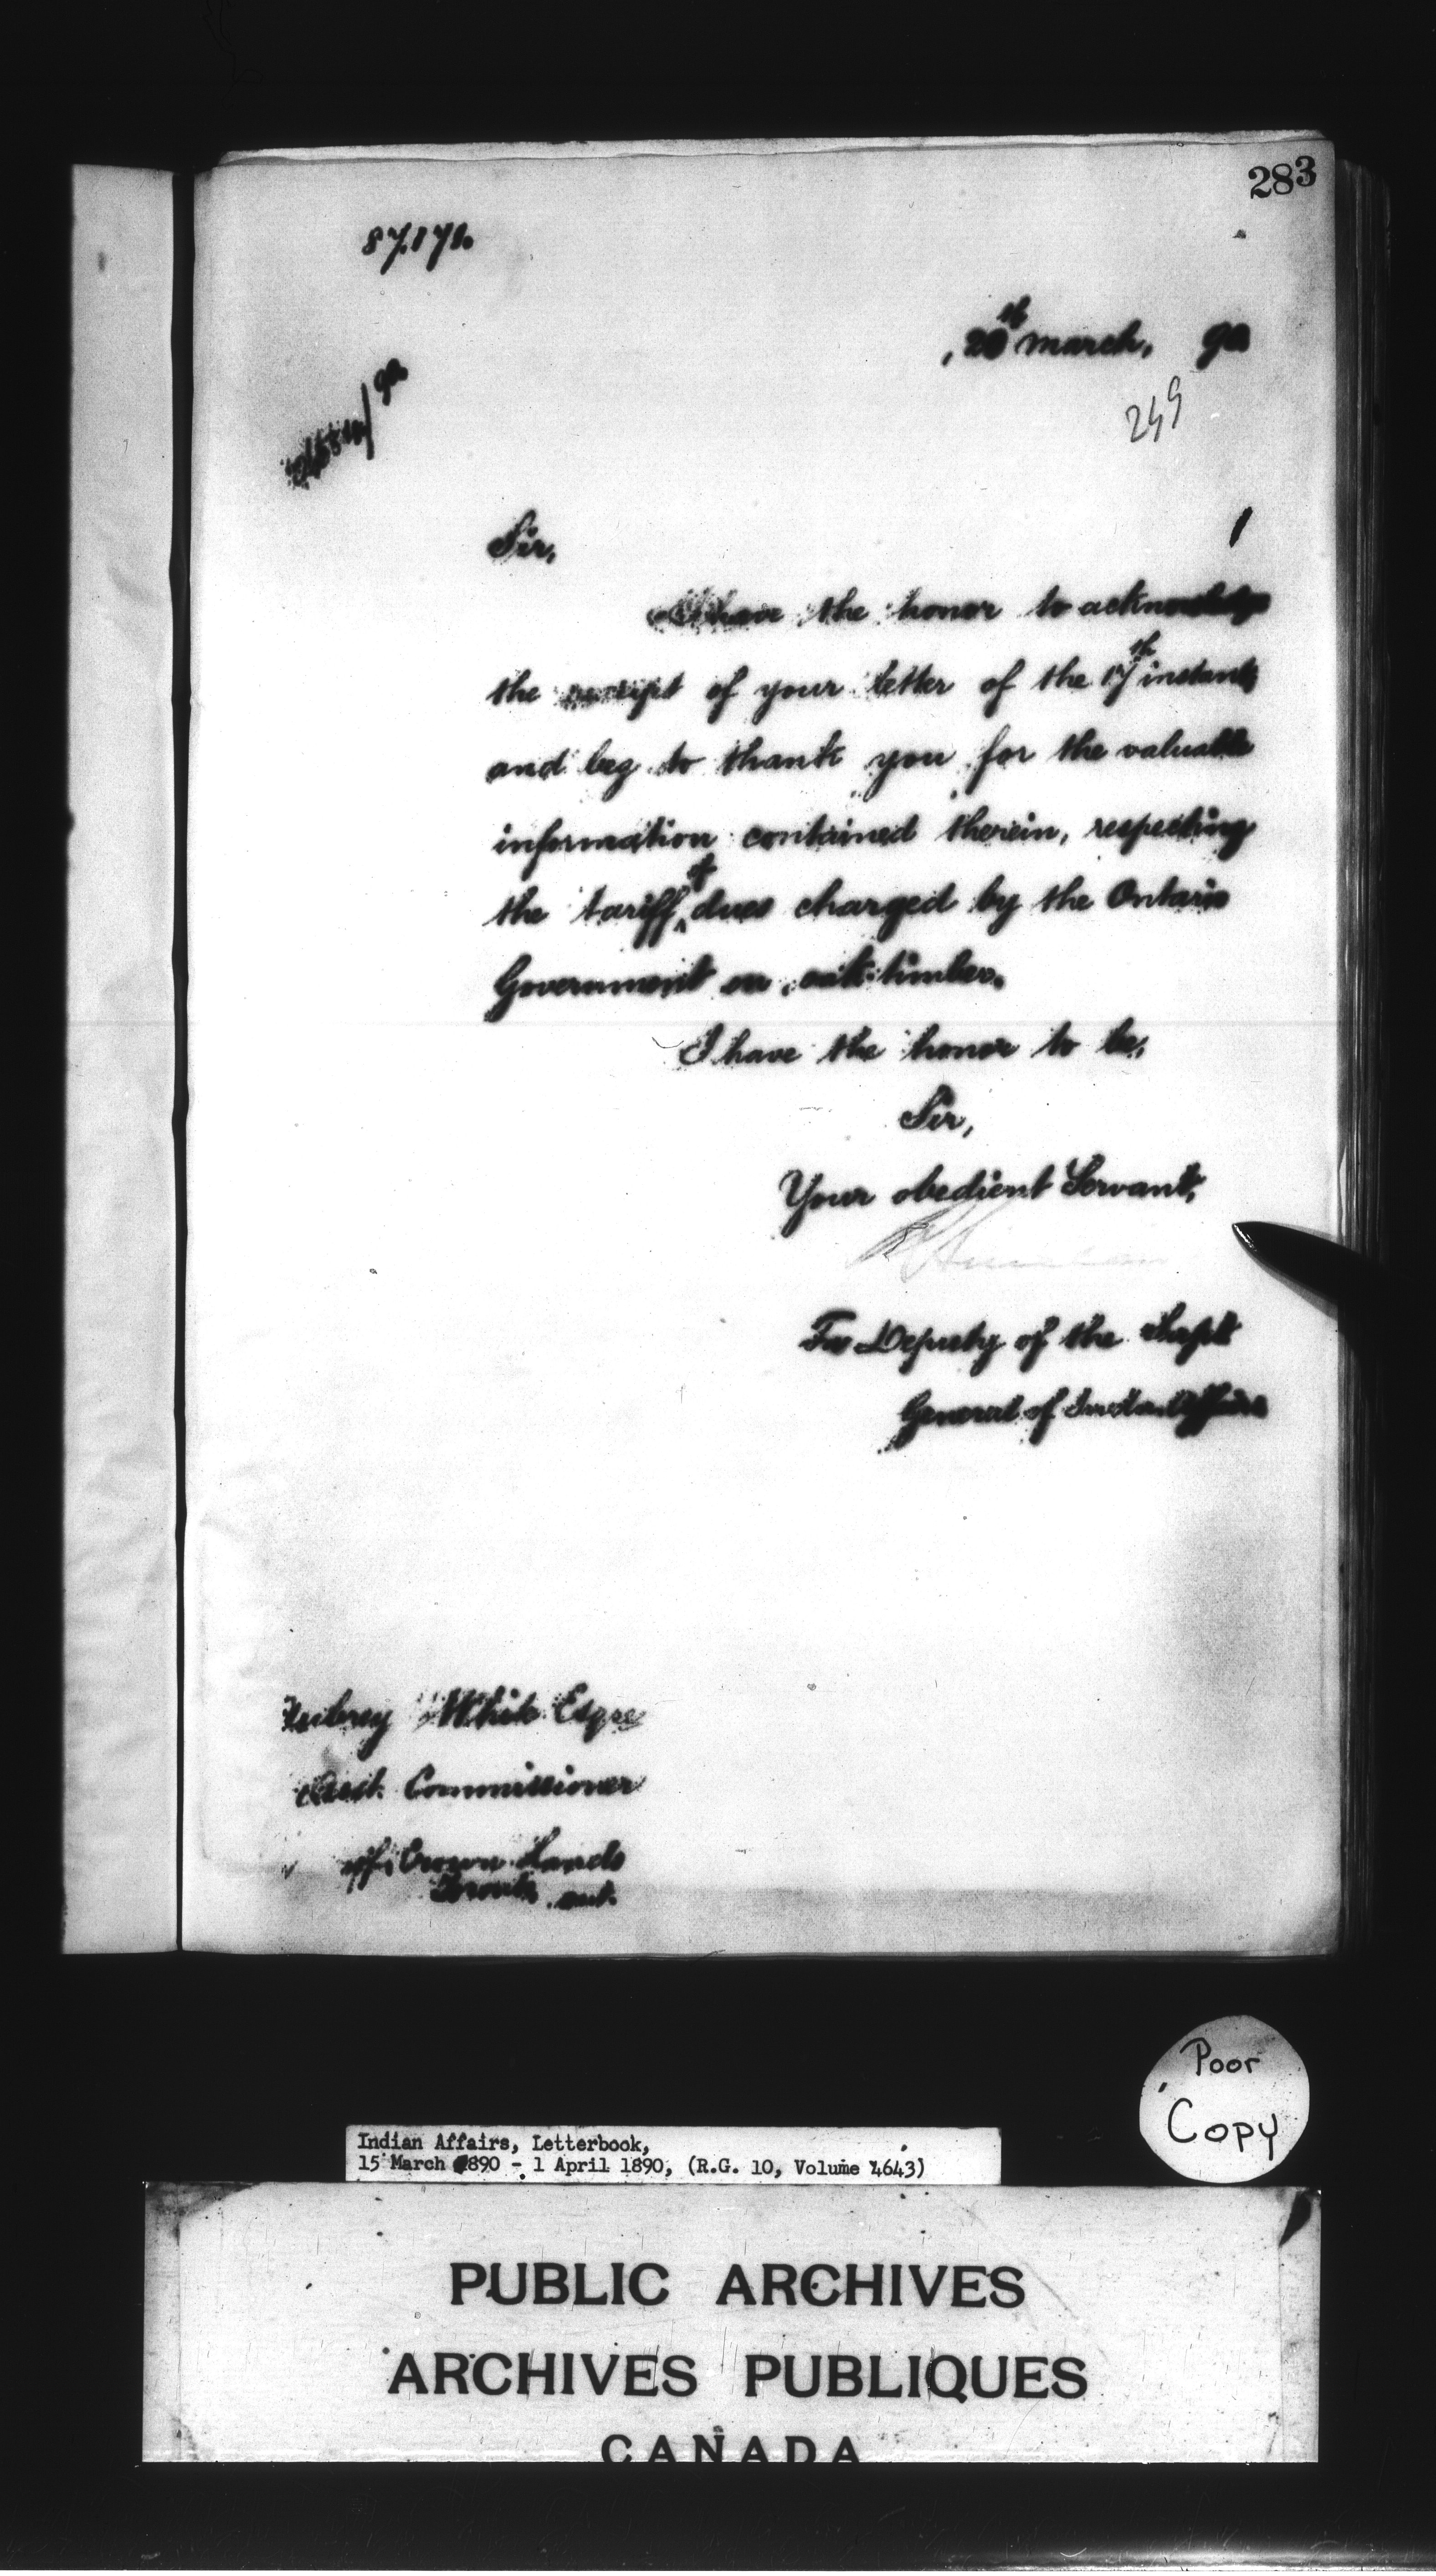 283
87,171.
, 20th March, 90
249
Sir,
I have the honor to acknowledge
the receipt of your letter of the 17th instant,
and beg to thank you for the valuable
information contained therein, respecting
the tariff of dues charged by the Ontario
Government on oak timber.
I have the honor to be,
Sir,
Your obedient Servant,
For Deputy of the Supt
General of Indian Affairs
Aubrey White Esqre
Asst. Commissioner
of Crown Lands
Toronto, Ont.
Poor
Copy
Indian Affairs, Letterbook,
15 March 1890 - 1 April 1890, (R.G. 10, Volume 4643)
PUBLIC ARCHIVES
ARCHIVES PUBLIQUES
CANADA